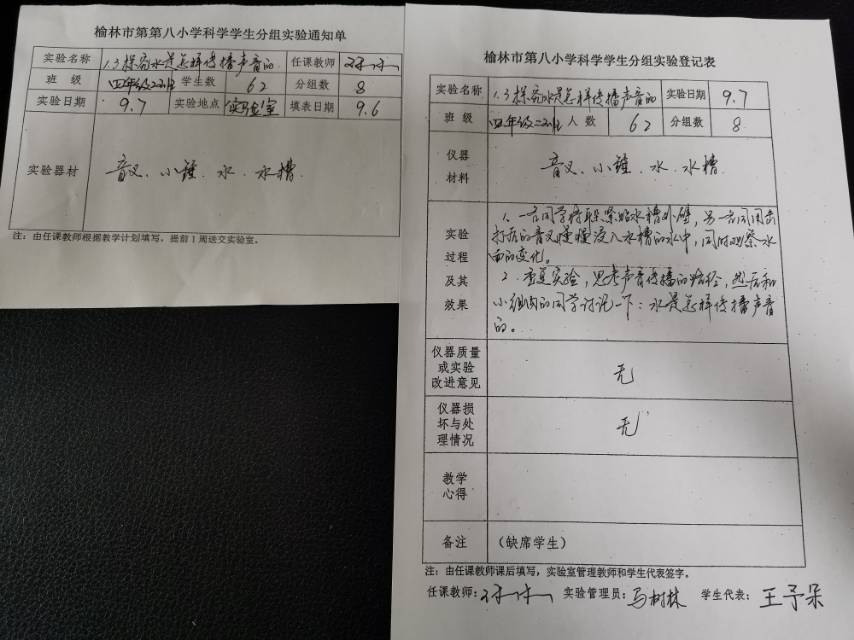 榆林市第第八小学科学学生分组实验通知单
实验名称 1.3探究水是怎样传播声音的 任课教师
班 级 四年级二班 学生数 62 分组数 8
实验日期 9.7 实验地点 实验室 填表日期 9.6
实验器材 音叉、小锤、水、水槽
注：由任课教师根据教学计划填写，提前1周送交实验室。
榆林市第八小学科学学生分组实验登记表
实验名称 1.3探究水是怎样传播声音的 实验日期 9.7
班 级 四年级二班 人 数 62 分组数 8
仪器
材料
音叉、小锤、水、水槽
实验
过程
及其
效果
1. 一名同学将耳朵紧贴水槽外壁，另一名同学用击
打后的音叉慢慢浸入水槽的水中，同时观察水
面的变化。
2. 重复实验，思考声音传播的路径，然后和
小组内的同学讨论一下：水是怎样传播声音
的。
仪器质量
或实验
改进意见
无
仪器损
坏与处
理情况
无
教学
心得
备注 （缺席学生）
注：由任课教师课后填写，实验室管理教师和学生代表签字。
任课教师： 实验管理员：马树林 学生代表：王予朵